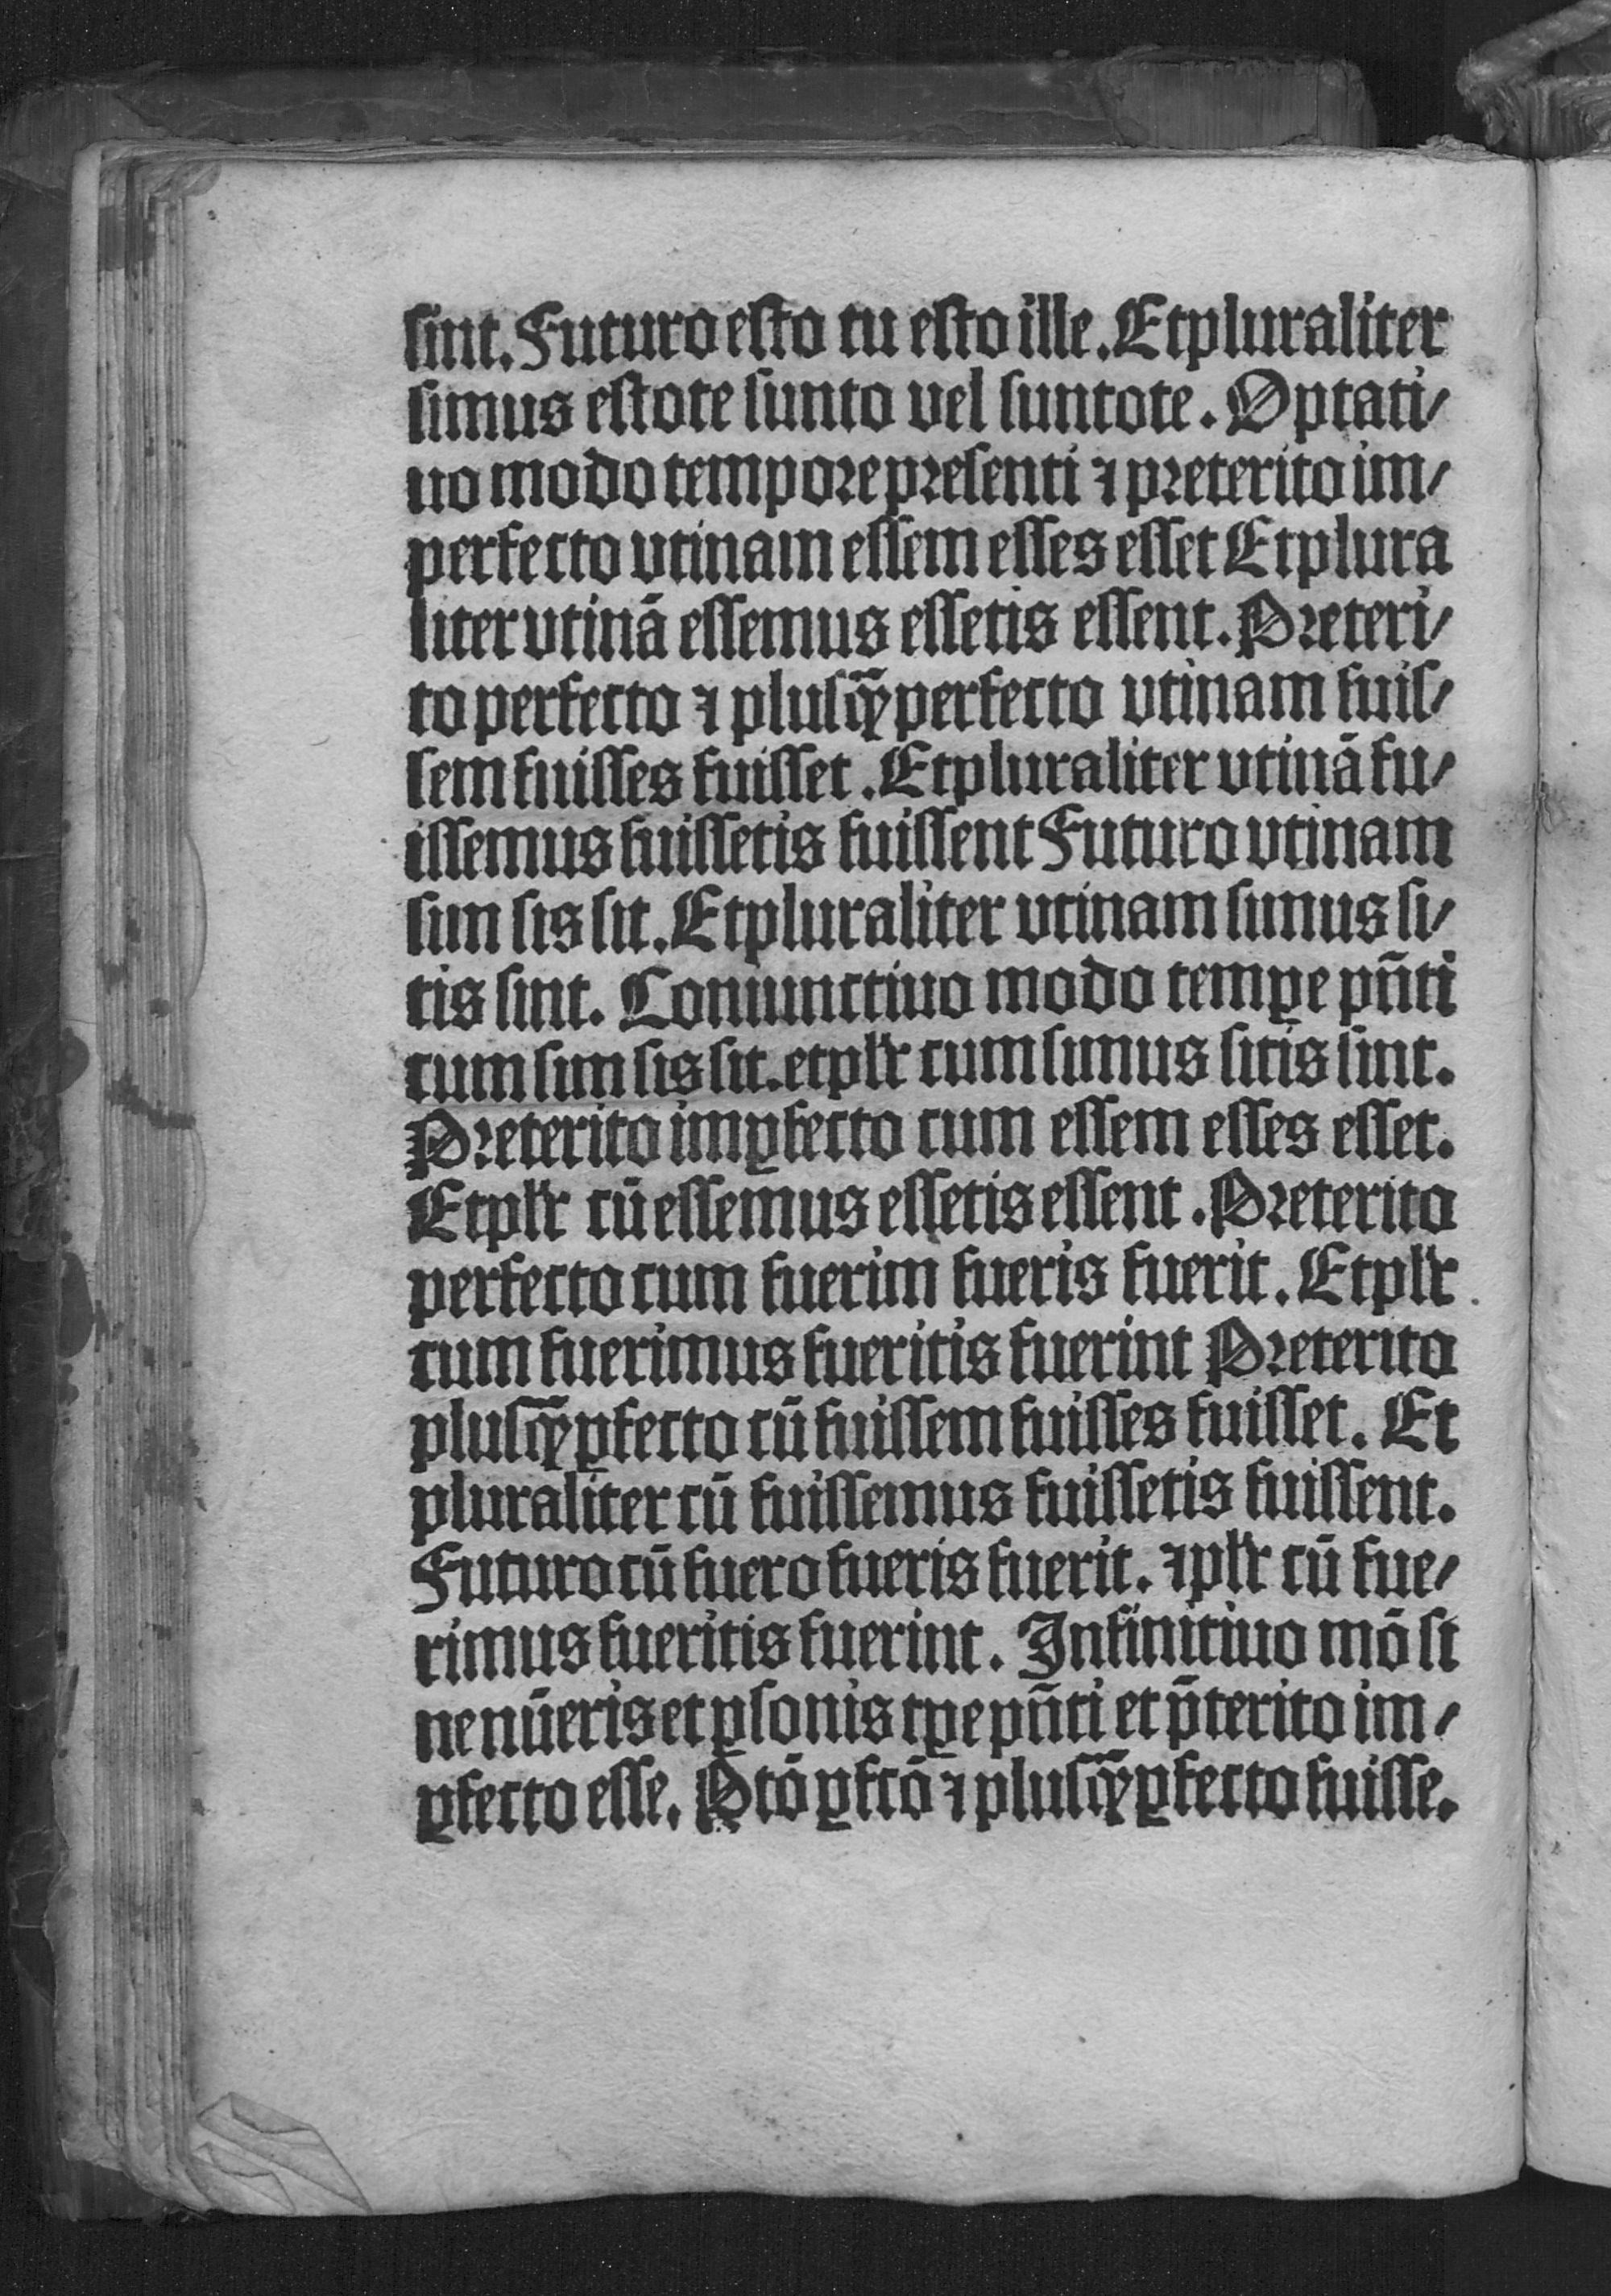 sint. Futuro esto tu esto ille. Et pluraliter
simus estote sunto vel suntote. Optati/
uo modo tempore presenti ⁊ preterito im/
perfecto vtinam essem esses esset Et plura
liter vtinā essemus essetis essent. Preteri/
to perfecto ⁊ plusq̄ꝫperfecto vtinam fuis/
sem fuisses fuisset. Et pluraliter vtinā fu/
issemus fuissetis fuissent Futuro vtinam
sim sis sit. Et pluraliter vtinam simus si/
tis sint. Coniunctiuo modo temꝑe pn̄ti
cum sim sis sit. et plr̄ cum simus sitis sint.
Preterito imꝑfecto cum essem esses esset.
Et plr̄ cū essemus essetis essent. Preterito
perfecto cum fuerim fueris fuerit. Et plr̄
cum fuerimus fueritis fuerint Preterito
plusq̄ꝫꝑfecto cū fuissem fuisses fuisset. Et
pluraliter cū fuissemus fuissetis fuissent.
Futuro cū fuero fueris fuerit. ⁊ plr̄ cū fue/
rimus fueritis fuerint. Infinitiuo mō si
ne nūeris et ꝑsonis tꝑe pn̄ti et p̄terito im/
ꝑfecto esse. Ptō ꝑfctō ⁊ plusq̄ꝫꝑfecto fuisse.